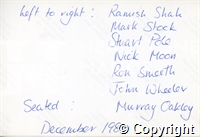 Left to right : Ramish Shah
Mark Stock
Stuart Pole
Nick Moon
Ron Smerth
John Wheeler
Seated : Murray Oakley
December 198
© Copyright